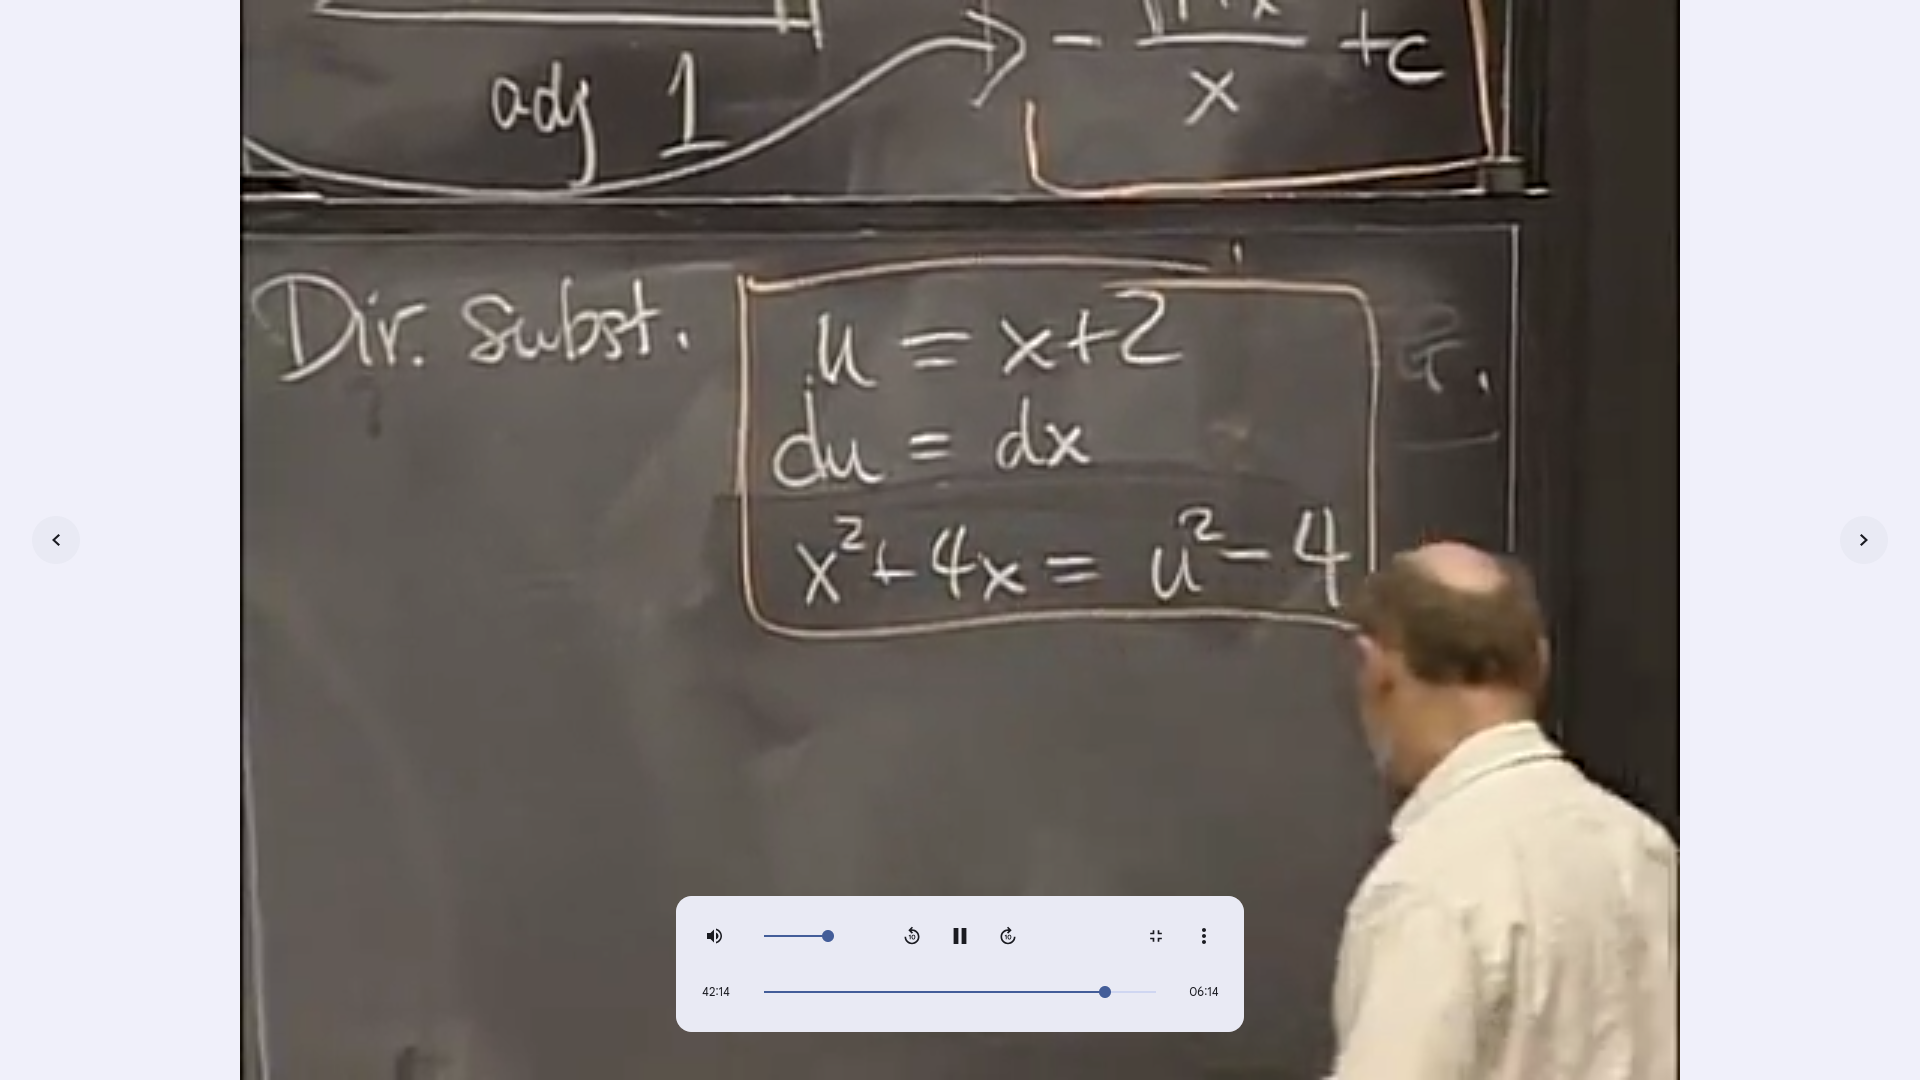 - √1+x
x
+c
adj 1
Dir. Subst.
u = x+2
du = dx
x²+4x = u²-4
42:14
06:14